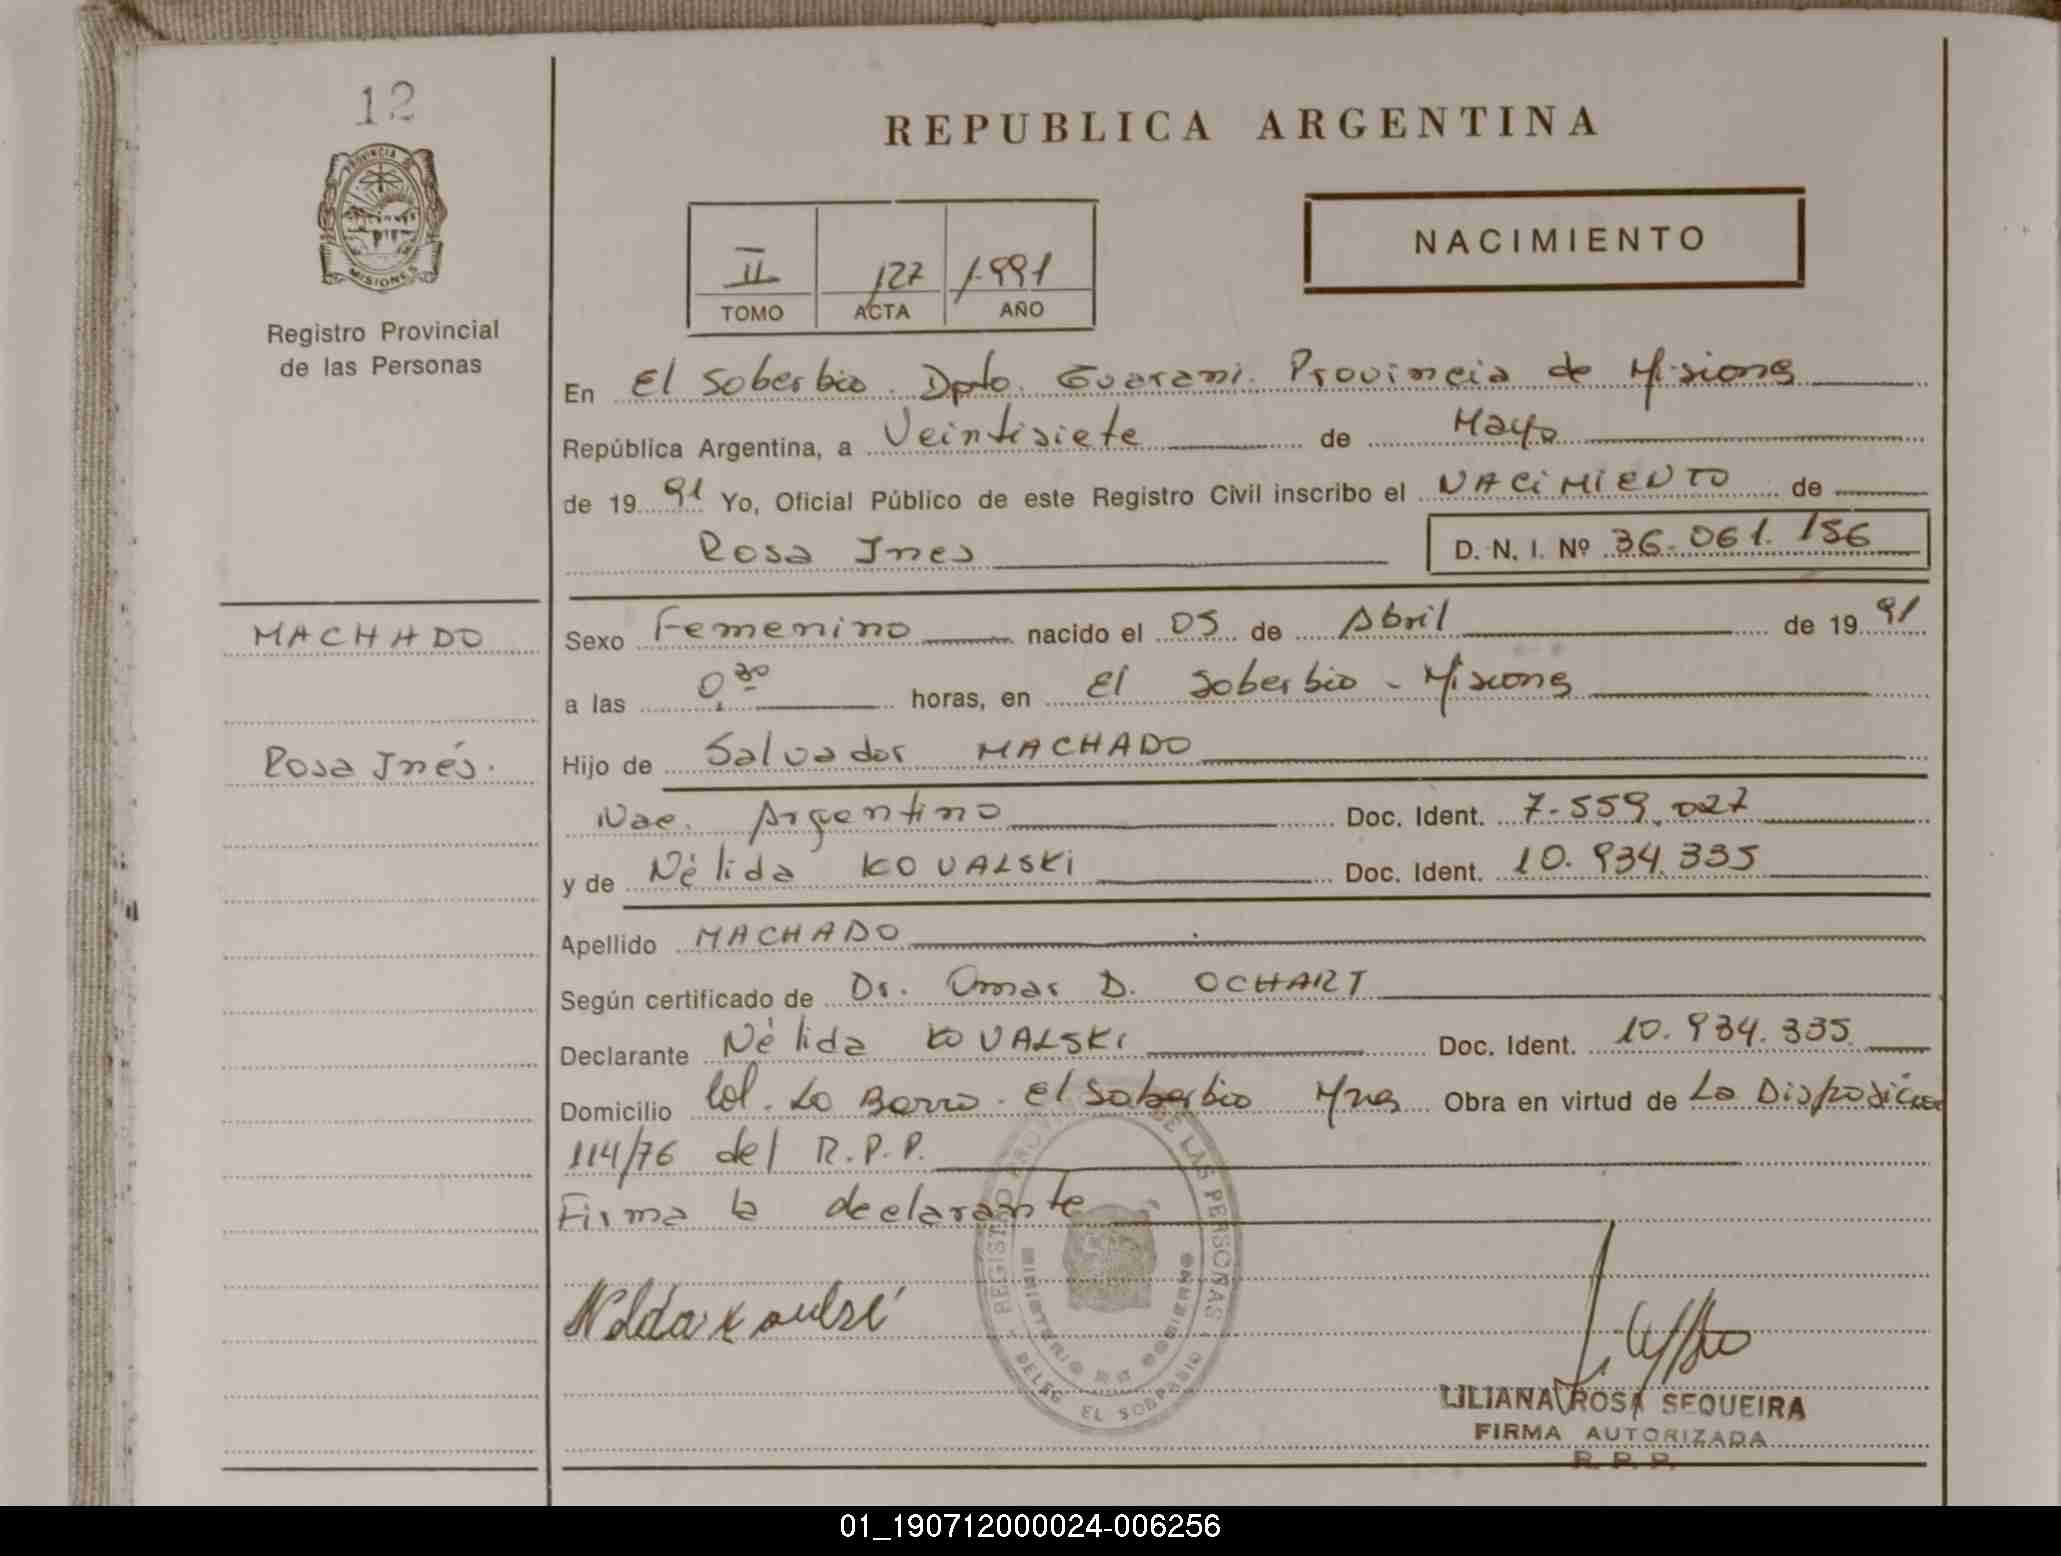 12
PROVINCIA DE
MISIONES
Registro Provincial
de las Personas
MACHADO
Rosa Inés.
REPUBLICA ARGENTINA
II 127 1.991
TOMO ACTA AÑO
NACIMIENTO
En El Soberbio. Dpto. Guarani. Provincia de Misiones
República Argentina, a Veintisiete de Mayo
de 19 91 Yo, Oficial Público de este Registro Civil inscribo el NACIMIENTO de
Rosa Ines D. N. I. Nº 36.061.156
Sexo Femenino nacido el 05 de Abril de 19 91
a las 0.30 horas, en El Soberbio - Misiones
Hijo de Salvador MACHADO
Nac. Argentino Doc. Ident. 7.559.027
y de Nélida KOVALSKI Doc. Ident. 10.934.335
Apellido MACHADO
Según certificado de Dr. Omar D. OCHART
Declarante Nélida KOVALSKI Doc. Ident. 10.934.335
Domicilio Col. La Barra. El Soberbio Mnes Obra en virtud de La Disposición
114/76 del R.P.P.
Firma la declarante
REGISTRO PROVINCIAL DE LAS PERSONAS
MINISTERIO DE GOBIERNO
DELEG. EL SOBERBIO
LILIANA ROSA SEQUEIRA
FIRMA AUTORIZADA
R. P. P.
01_190712000024-006256